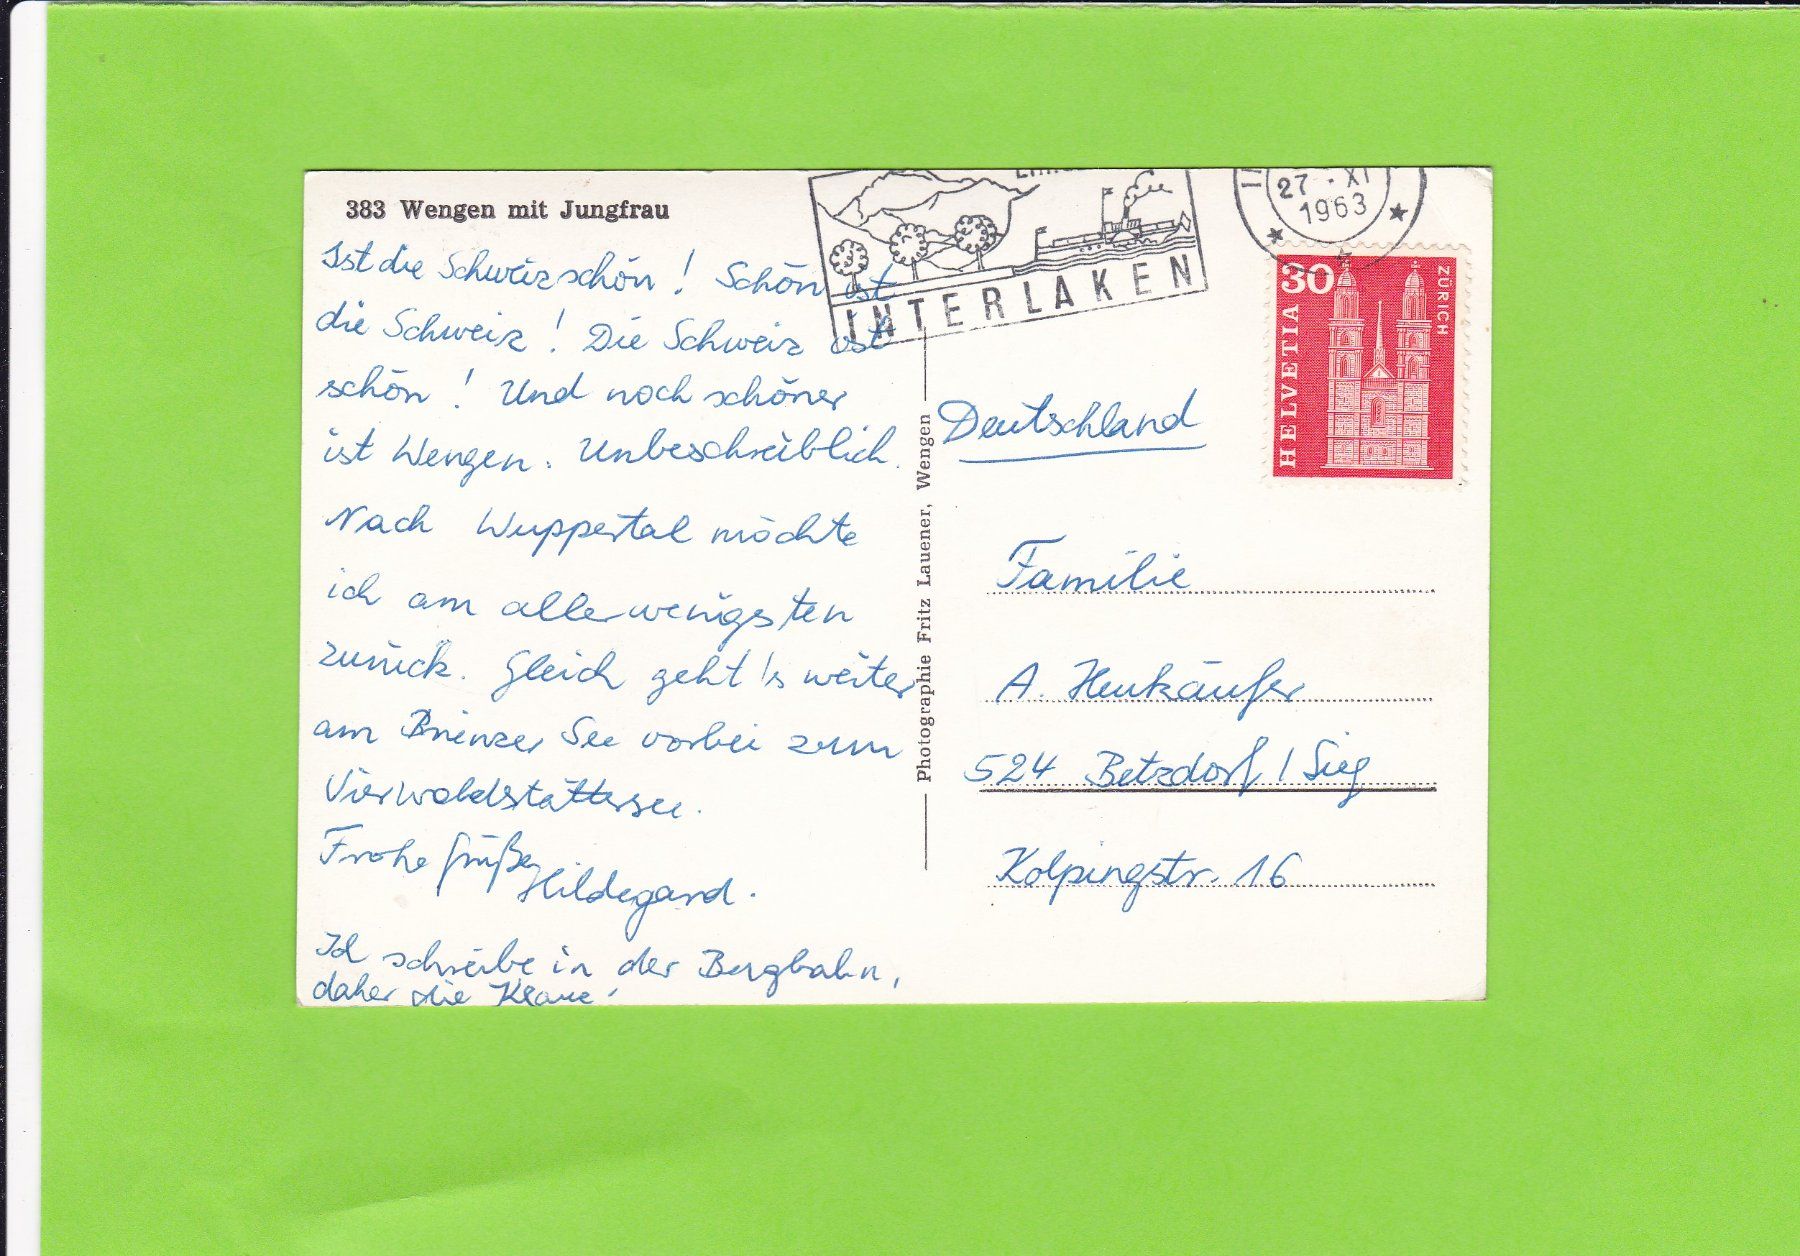 383 Wengen mit Jungfrau
Ist die Schweiz schön! Schön ist
die Schweiz! Die Schweiz ist
schön! Und noch schöner
ist Wengen. Unbeschreiblich.
Nach Wuppertal möchte
ich am allerwenigsten
zurück. Gleich geht's weiter
am Brienzer See vorbei zum
Vierwaldstättersee.
Frohe Grüße
Hildegard.
Ich schreibe in der Bergbahn,
daher die Klaue!
Photographie Fritz Lauener, Wengen
INTERLAKEN
27.XI
1963
30
HELVETIA
ZÜRICH
Deutschland
Familie
A. Heukäufer
524 Betzdorf / Sieg
Kolpingstr. 16